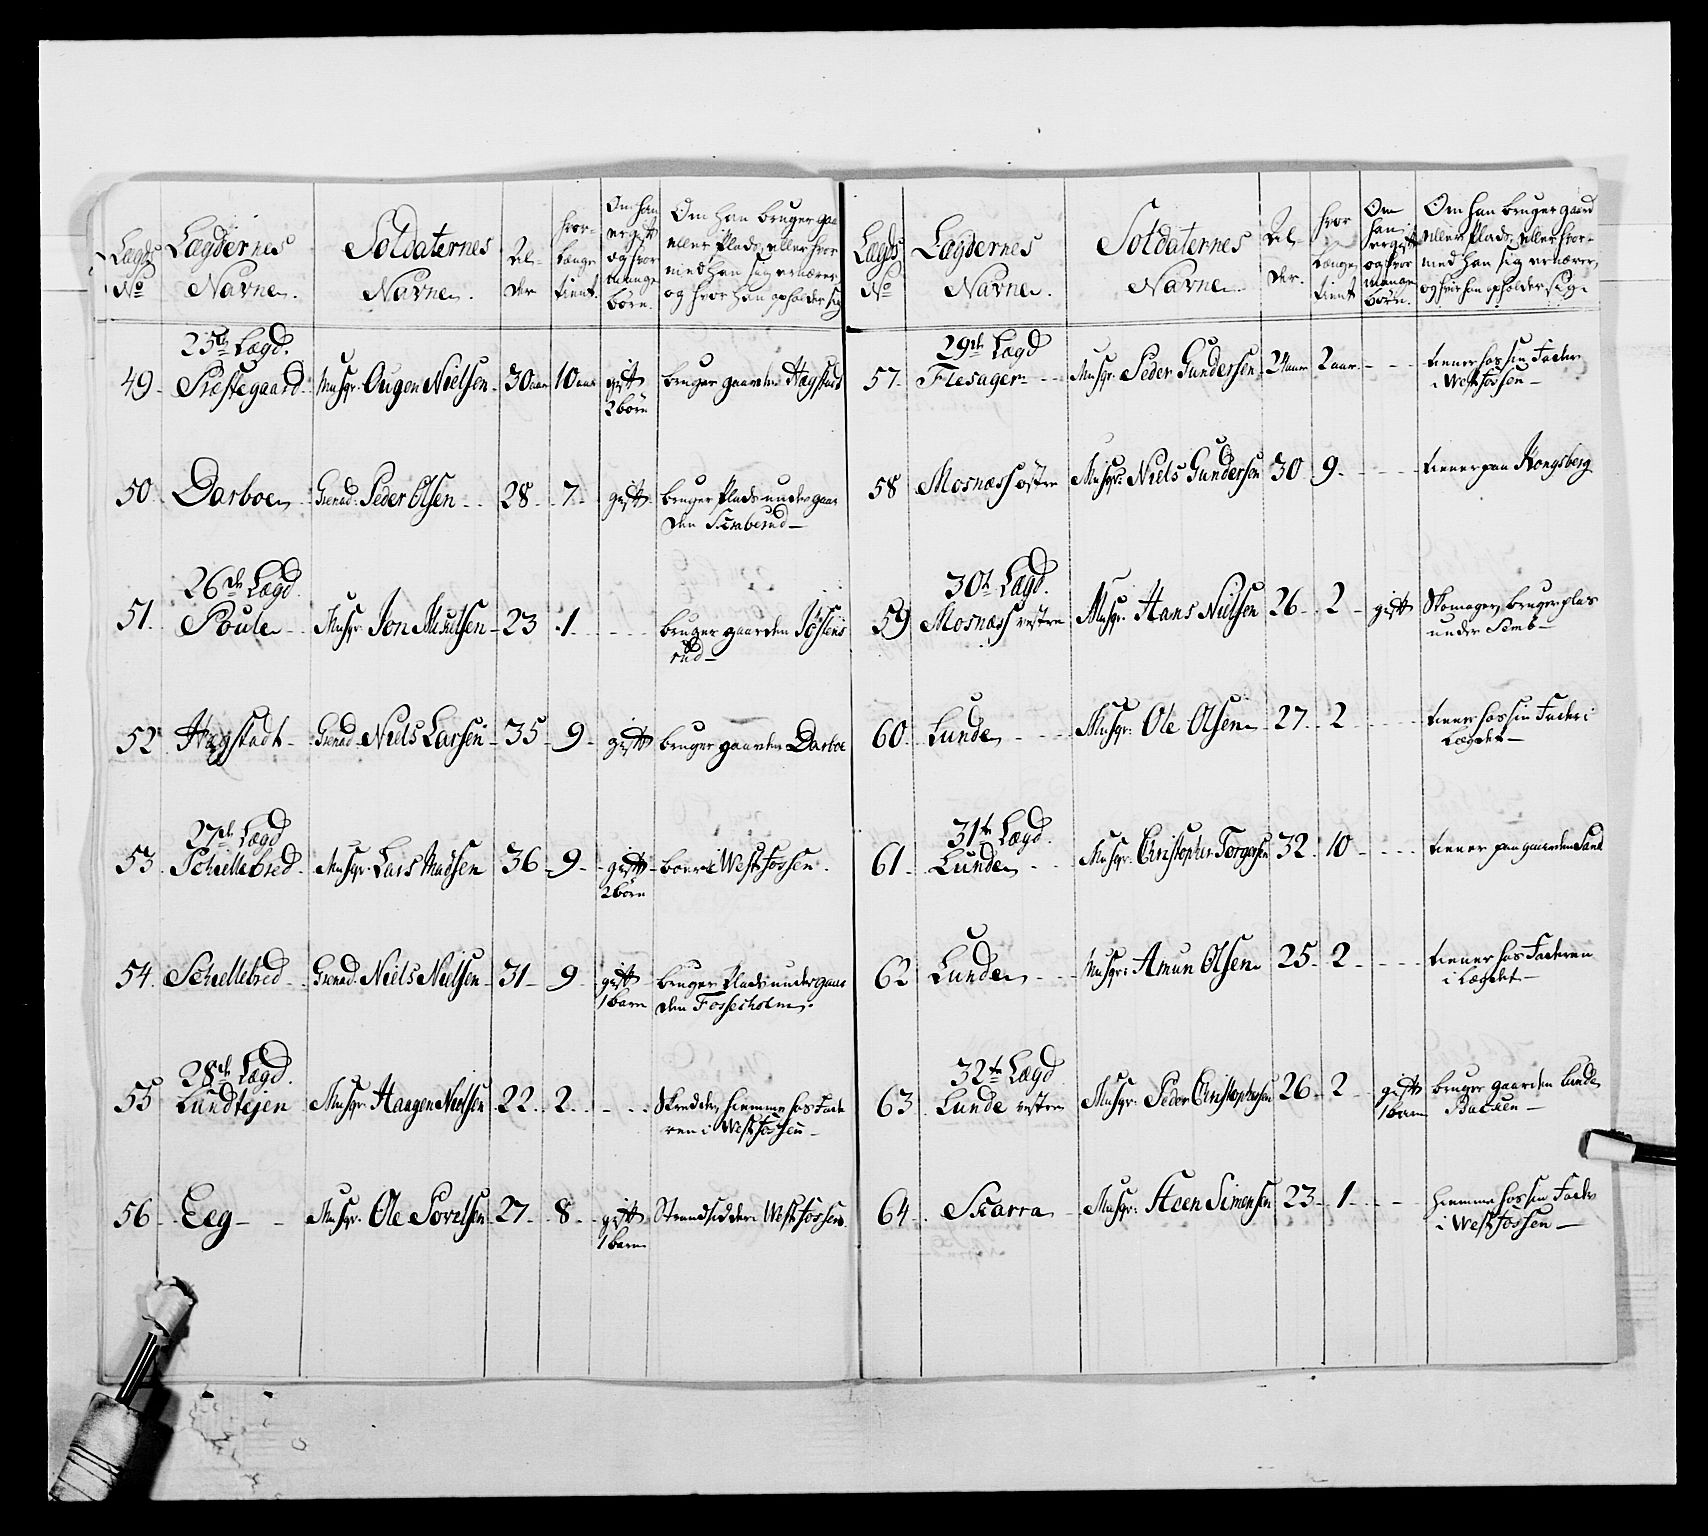 Lægds
No
Lægdernes
Navne.
Soldaternes
Navne.
Al-
der
hvor-
længe
tient.
Om han
er gift
og hvor
mange
börn.
Om han bruger gaa
eller Plads, eller hvor
med han sig ernærer
og hvor han opholder sig
25de Lægd.
49. Præstegaard Musqr. Ougen Nielsen 30 aar 10 aar gift bruger gaarden Hægstad
2 börn
50. Darboe Grenad. Peder Olsen 28. 7. gift bruger Plads under gaar
den
26de Lægd.
51. Poule Musqr. Jon 23 1 bruger gaarden
rud
52 Hægstadt Grenad Niels Larsen 35 9 gift bruger gaarden Darboe
27de Lægd
53. Schiellebred Musqr. Lars Madsen 36 9 gift boer i Westfossen.
2 börn
54. Schiellebred Grenad. Niels Nielsen 31 9 gift bruger Plads under gaar
1 barn den Fossesholm.
28de Lægd.
55 Lundtejen Musqr. Haagen Nielsen 22. 2. Skredder, hiemme hos Fade
ren i Westfossen
56 Eeg Musqr. Ole 27 8 gift Strandsidder i Westfossen.
1 barn
Lægds
No
Lægdernes
Navne.
Soldaternes
Navne.
Al-
der.
hvor
længe
tient
Om
han
er gift
og hvor
mange
börn.
Om han bruger gaard
eller Plads, eller hvor-
med han sig ernærer,
og hvor han opholder sig.
29de Lægd
57. Flesager Musqr. Peder Gundersen 24 aar 2 aar tiener hos sin Fader
i Westfossen
58 Mosnæss östre Musqr. Niels Gundersen 30 9. tiener paa Kongsberg
30te Lægd.
59 Mosnæss vestre Musqr. Hans Nielsen 26 2 gift Skomager, bruger plas
under Semb
60. Lunde Musqr. Ole Olsen 27 2 tiener hos sin Fader i
Lægdet
31te Lægd.
61. Lunde Musqr. Christopher Torgersen 32. 10 tiener paa gaarden Sand
62 Lunde Musqr: Amun Olsen 25. 2 tiener hos Faderen
i Lægdet
32te Lægd
63 Lunde vestre Musqr. Peder Christophersen 26 2 gift bruger gaarden Lunde
1 barn Backen
64. Skarra Musqr. Steen Simensen 23 1 hiemme hos sin Fader
i Westfossen